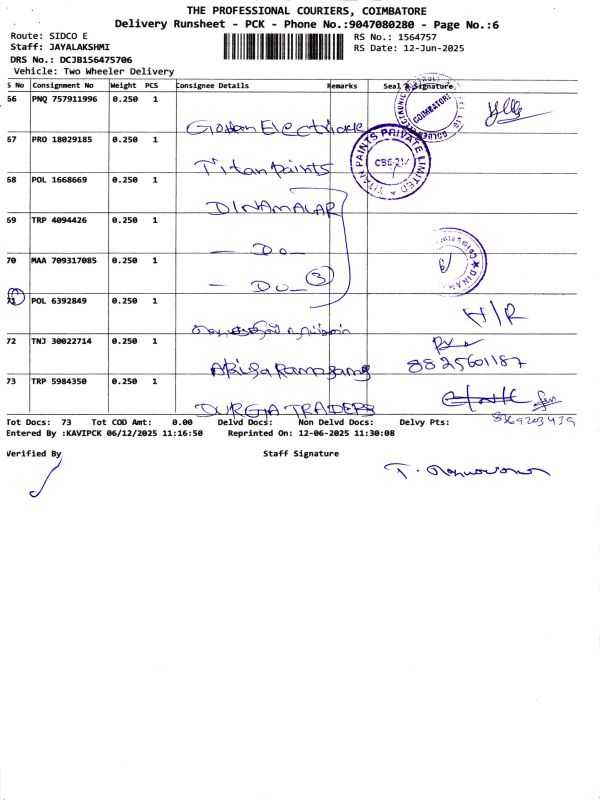 THE PROFESSIONAL COURIERS, COIMBATORE
Delivery Runsheet - PCK - Phone No.:9047080280 - Page No.:6
Route: SIDCO E
RS No.: 1564757
Staff: JAYALAKSHMI
RS Date: 12-Jun-2025
DRS No.: DCJB156475706
Vehicle: Two Wheeler Delivery
S No Consignment No Weight PCS Consignee Details Remarks Seal & Signature
66 PNQ 757911996 0.250 1
COIMBATORE
67 PRO 18029185 0.250 1 Titan Paints
TITAN PAINTS PRIVATE LIMITED
CBE-21
68 POL 1668669 0.250 1 DINAMALAR
69 TRP 4094426 0.250 1 — Do —
70 MAA 709317085 0.250 1 — Do — 3
71 POL 6392849 0.250 1 H/R
72 TNJ 30022714 0.250 1 8825601187
73 TRP 5984350 0.250 1 DURGA TRADERS
Tot Docs: 73 Tot COD Amt: 0.00 Delvd Docs: Non Delvd Docs: Delvy Pts:
Entered By :KAVIPCK 06/12/2025 11:16:50 Reprinted On: 12-06-2025 11:30:08
Verified By Staff Signature